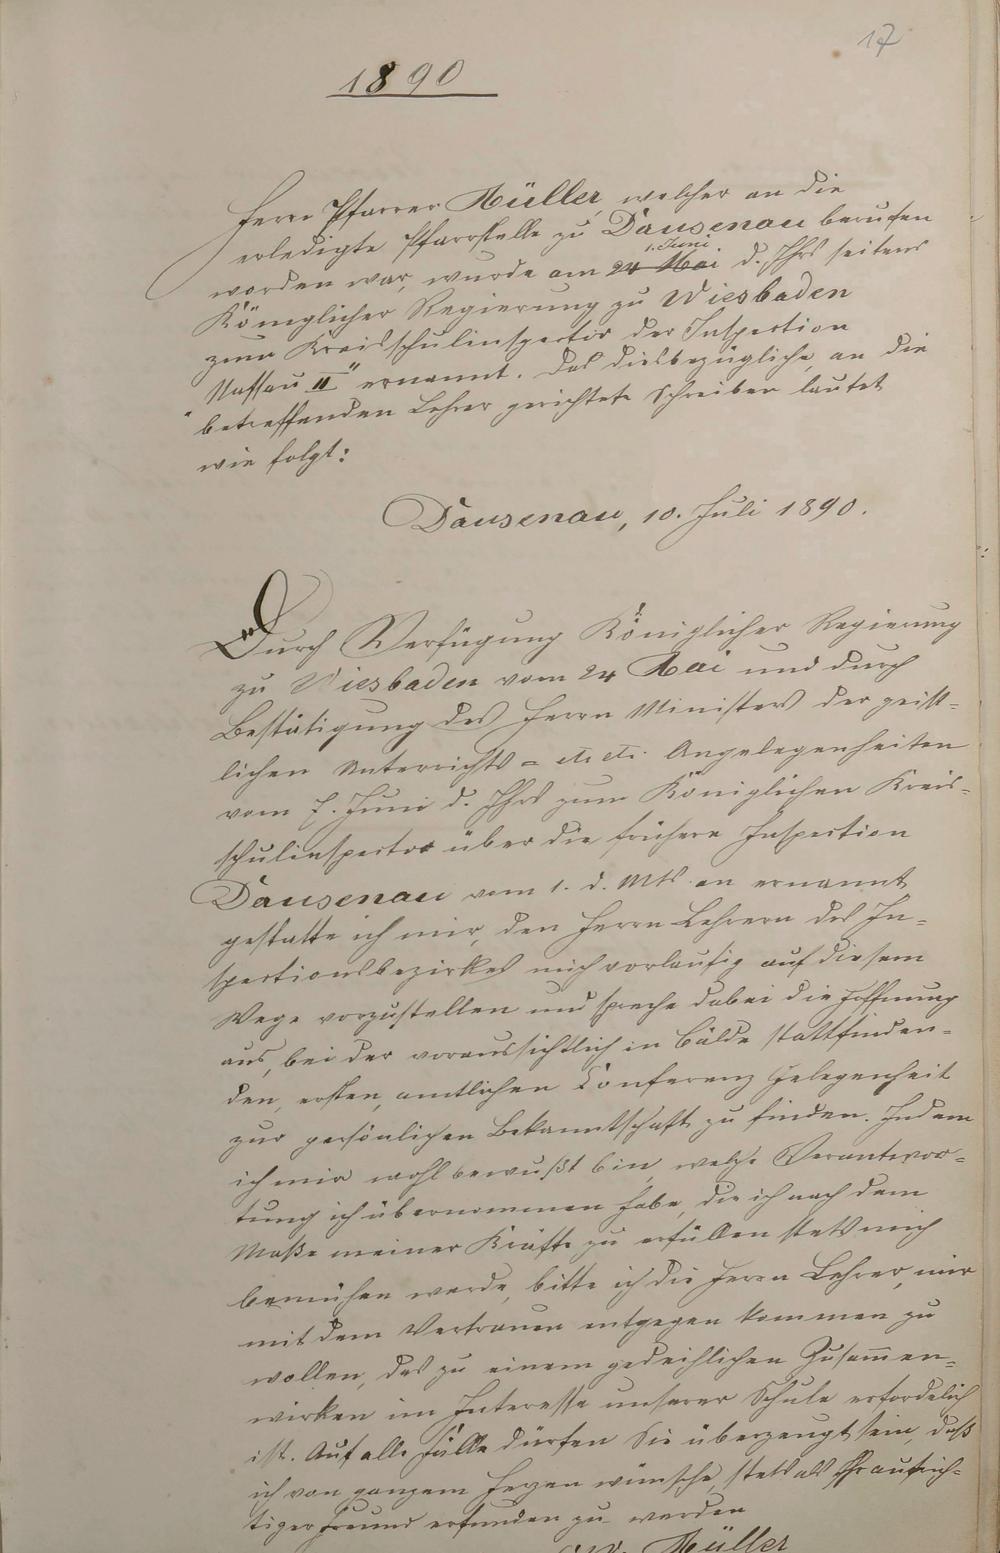 17
1890
Herr Pfarrer Müller, welcher an die
erledigte Pfarrstelle zu Dausenau berufen
1. Juni
worden war, wurde am 24 Mai d. Jhrs seitens
Königlicher Regierung zu Wiesbaden
zum Kreisschulinspector der Inspection
"Nassau II" ernannt. Das diesbezügliche, an die
betreffenden Lehrer gerichtete Schreiben lautet
wie folgt:
Dausenau, 10. Juli 1890.
Durch Verfügung Königlicher Regierung
zu Wiesbaden vom 24 Mai und durch
Bestätigung des Herrn Ministers der geist-
lichen Unterrichts- etc etc. Angelegenheiten
vom Juni d. Jhrs zum Königlichen Kreis-
schulinspector über die frühere Inspection
Dausenau vom 1. d. Mts. an ernannt,
gestatte ich mir, den Herrn Lehrern des In-
spectionsbezirkes mich vorläufig auf diesem
Wege vorzustellen und spreche dabei die Hoffnung
aus, bei der voraussichtlich in Bälde stattfinden-
den, ersten, amtlichen Conferenz Gelegenheit
zur persönlichen Bekanntschaft zu finden. Indem
ich mir wohl bewußt bin, welche Verantwor-
tung ich übernommen habe, die ich nach dem
Maße meiner Kräfte zu erfüllen stets mich
bemühen werde, bitte ich die Herrn Lehrer, mir
mit dem Vertrauen entgegen kommen zu
wollen, das zu einem gedeihlichen Zusam̄en-
wirken im Interesse unserer Schule erforderlich
ist. Auf alle Fälle dürfen Sie überzeugt sein, daß
ich von ganzem Herzen wünsche, stets als Ihr aufrich-
tiger Freund erfunden zu werden
Müller